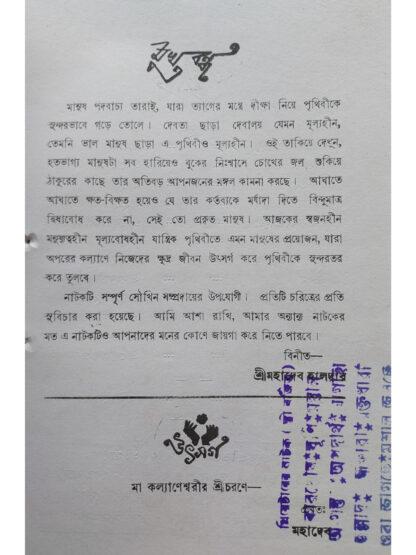 মুখবন্ধ
মানুষ পদবাচ্য তারাই, যারা ত্যাগের মন্ত্রে দীক্ষা নিয়ে পৃথিবীকে
সুন্দরভাবে গড়ে তোলে। দেবতা ছাড়া দেবালয় যেমন মূল্যহীন,
তেমনি ভাল মানুষ ছাড়া এ পৃথিবীও মূল্যহীন। ওই তাকিয়ে দেখুন,
হতভাগ্য মানুষটা সব হারিয়েও বুকের নিঃশ্বাসে চোখের জল শুকিয়ে
ঠাকুরের কাছে তার অতিবড় আপনজনের মঙ্গল কামনা করছে। আঘাতে
আঘাতে ক্ষত-বিক্ষত হয়েও যে তার কর্তব্যকে মর্যাদা দিতে বিন্দুমাত্র
দ্বিধাবোধ করে না, সেই তো প্রকৃত মানুষ। আজকের স্বজনহীন
মনুষ্যত্বহীন মূল্যবোধহীন যান্ত্রিক পৃথিবীতে এমন মানুষের প্রয়োজন, যারা
অপরের কল্যাণে নিজেদের ক্ষুদ্র জীবন উৎসর্গ করে পৃথিবীকে সুন্দরতর
করে তুলবে।
নাটকটি সম্পূর্ণ সৌখিন সম্প্রদায়ের উপযোগী। প্রতিটি চরিত্রের প্রতি
সুবিচার করা হয়েছে। আমি আশা রাখি, আমার অন্যান্য নাটকের
মত এ নাটকটিও আপনাদের মনের কোণে জায়গা করে নিতে পারবে।
বিনীত—
শ্রীমহাদেব হালদার
উৎসর্গ
মা কল্যাণেশ্বরীর শ্রীচরণে—
মহাদেব
থিয়েটারের নাটক (স্ত্রী বর্জিত)